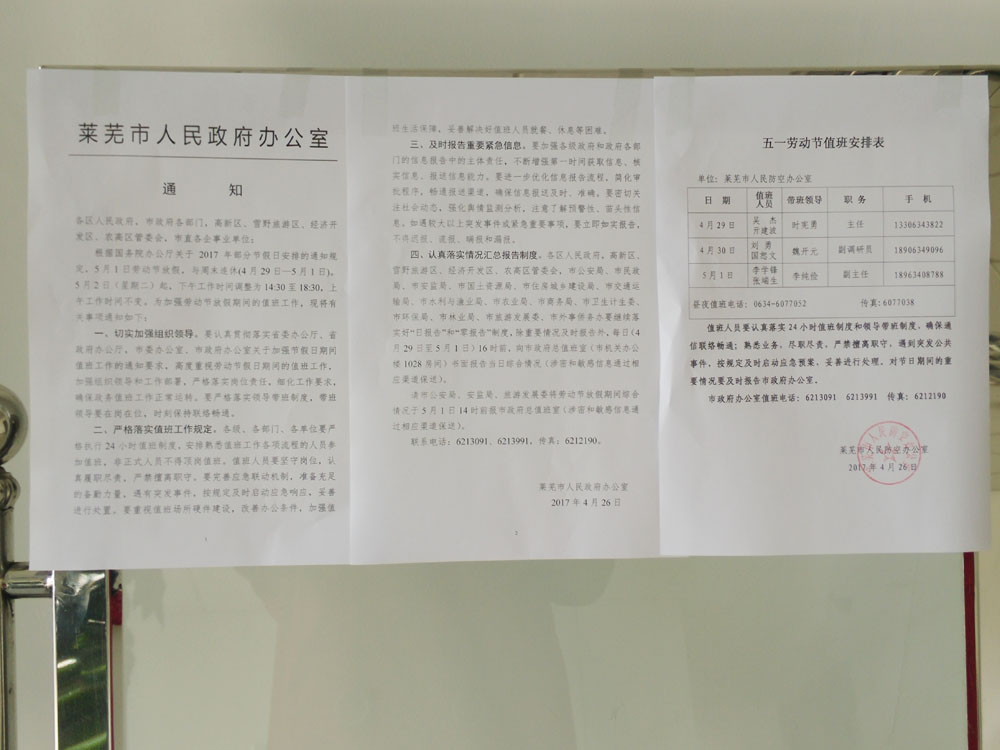 莱芜市人民政府办公室
通 知
各区人民政府，市政府各部门，高新区、雪野旅游区、经济开
发区、农高区管委会，市直各企事业单位：
根据国务院办公厅关于 2017 年部分节假日安排的通知规
定，5月1日劳动节放假，与周末连休(4月29日—5月1日)。
5月2日（星期二）起，下午工作时间调整为 14:30 至 18:30，上
午工作时间不变。为加强劳动节放假期间的值班工作，现将有
关事项通知如下：
一、切实加强组织领导。要认真贯彻落实省委办公厅、省
政府办公厅，市委办公室、市政府办公室关于加强节假日期间
值班工作的通知要求，高度重视劳动节假日期间的值班工作，
加强组织领导和工作部署，严格落实岗位责任，细化工作要求，
确保政务值班工作正常运转。要严格落实领导带班制度，带班
领导要在岗在位，时刻保持联络畅通。
二、严格落实值班工作规定。各级、各部门、各单位要严
格执行 24 小时值班制度，安排熟悉值班工作各项流程的人员参
加值班，非正式人员不得顶岗值班。值班人员要坚守岗位，认
真履职尽责，严禁擅离职守。要完善应急联动机制，准备充足
的备勤力量，遇有突发事件，按规定及时启动应急响应，妥善
进行处置。要重视值班场所硬件建设，改善办公条件，加强值
1
班生活保障，妥善解决好值班人员就餐、休息等困难。
三、及时报告重要紧急信息。要加强各级政府和政府各部
门的信息报告中的主体责任，不断增强第一时间获取信息、核
实信息、报送信息能力。要进一步优化信息报告流程，简化审
批程序，畅通报送渠道，确保信息报送及时、准确。要密切关
注社会动态，强化舆情监测分析，注意了解预警性、苗头性信
息，如遇较大以上突发事件或紧急重要事项，要立即如实报告，
不得迟报、谎报、瞒报和漏报。
四、认真落实情况汇总报告制度。各区人民政府，高新区、
雪野旅游区、经济开发区、农高区管委会，市公安局、市民政
局、市安监局、市国土资源局、市住房城乡建设局、市交通运
输局、市水利与渔业局、市农业局、市商务局、市卫生计生委、
市环保局、市林业局、市旅游发展委、市外事侨务办要继续落
实好“日报告”和“零报告”制度，除重要情况及时报告外，每日(4
月 29 日至 5 月 1 日) 16 时前，向市政府总值班室（市机关办公
楼 1028 房间）书面报告当日综合情况（涉密和敏感信息通过相
应渠道保送）。
请市公安局、安监局、旅游发展委将劳动节放假期间综合
情况于 5 月 1 日 14 时前报市政府总值班室（涉密和敏感信息通
过相应渠道保送）。
联系电话：6213091、6213991，传真：6212190。
莱芜市人民政府办公室
2017 年 4 月 26 日
2
五一劳动节值班安排表
单位：莱芜市人民防空办公室
日 期 值班人员 带班领导 职 务 手 机
4月29日 吴 杰 亓建波 叶宪勇 主任 13306343822
4月30日 刘 勇 国忠文 魏开元 副调研员 18906349096
5月1日 李学锋 张瑞生 李纯俭 副主任 18963408788
昼夜值班电话：0634-6077052 传真：6077038
值班人员要认真落实 24 小时值班制度和领导带班制度，确保通
信联络畅通；熟悉业务、尽职尽责，严禁擅离职守，遇到突发公共
事件，按规定及时启动应急预案，妥善进行处理。对节日期间的重
要情况要及时报告市政府办公室。
市政府办公室值班电话：6213091 6213991 传真：6212190
莱芜市人民防空办公室
2017 年 4 月 26 日